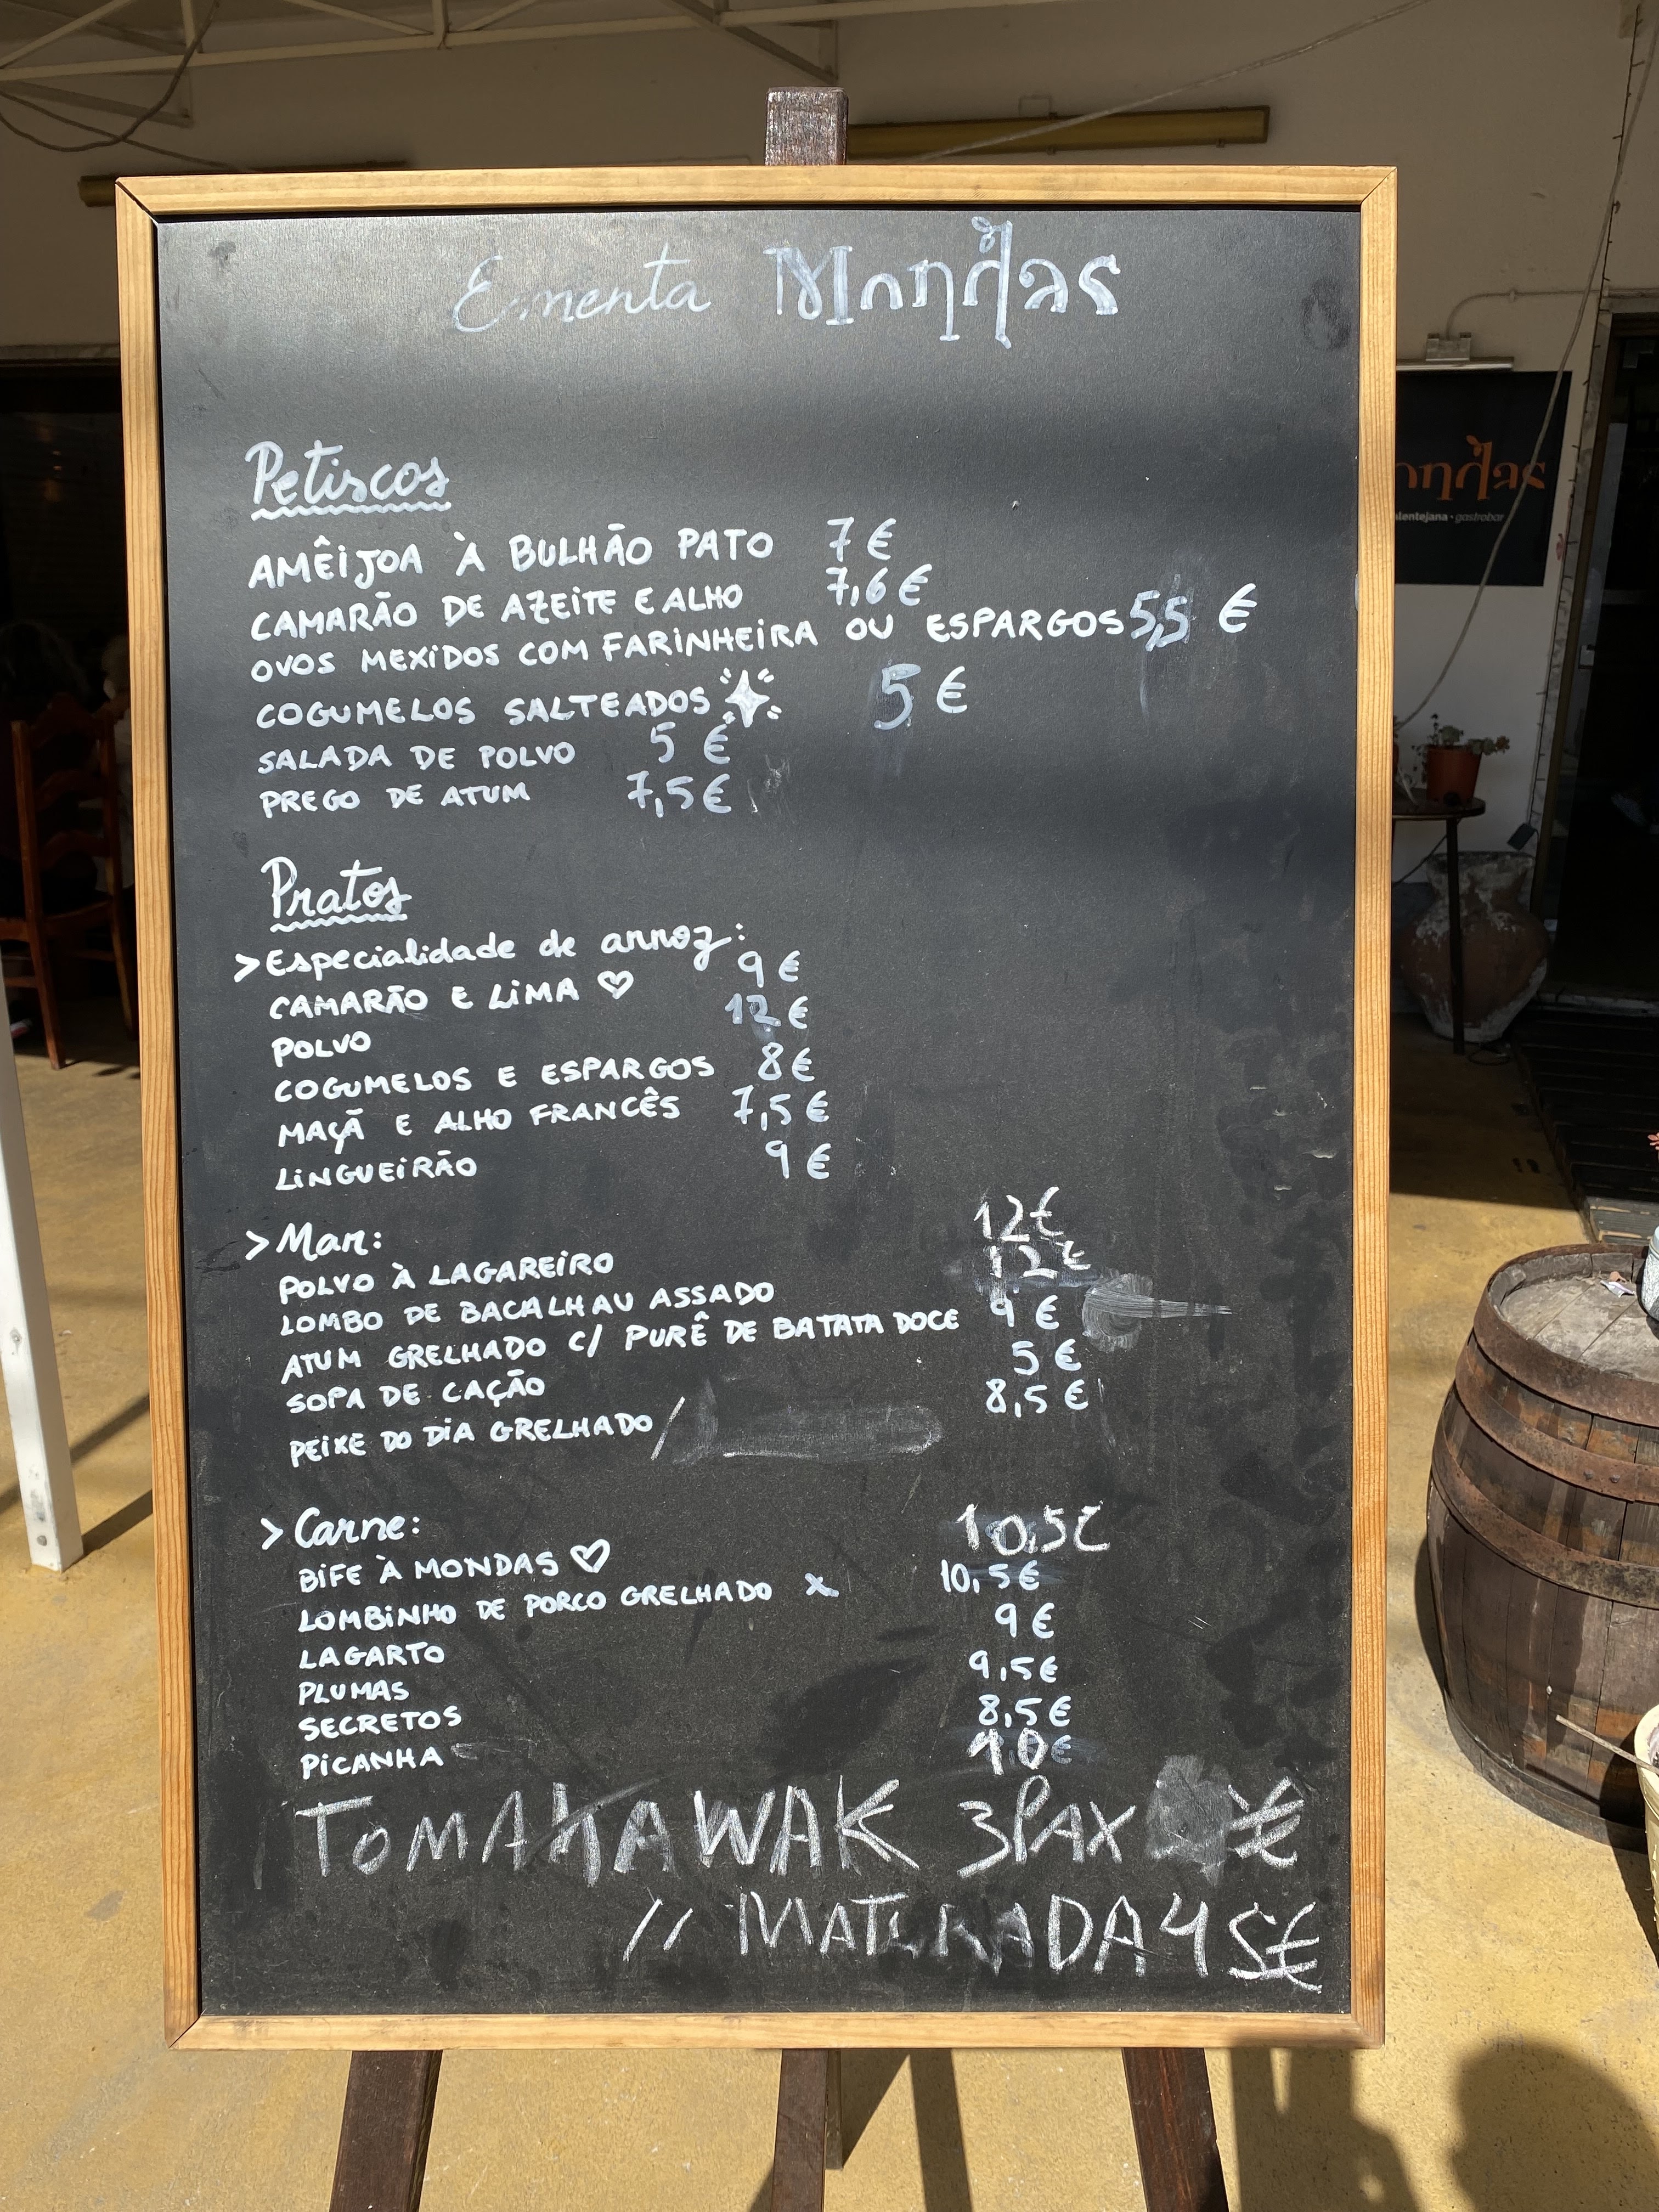 Ementa Mondas
Petiscos
AMÊIJOA À BULHÃO PATO 7 €
CAMARÃO DE AZEITE E ALHO 7,6 €
OVOS MEXIDOS COM FARINHEIRA OU ESPARGOS 5,5 €
COGUMELOS SALTEADOS 5 €
SALADA DE POLVO 5 €
PREGO DE ATUM 7,5 €
Pratos
> Especialidade de arroz:
CAMARÃO E LIMA ♡ 9 €
POLVO 12 €
COGUMELOS E ESPARGOS 8 €
MAÇÃ E ALHO FRANCÊS 7,5 €
LINGUEIRÃO 9 €
> Mar:
POLVO À LAGAREIRO 12€
LOMBO DE BACALHAU ASSADO 12€
ATUM GRELHADO C/ PURÊ DE BATATA DOCE 9 €
SOPA DE CAÇÃO 5 €
PEIXE DO DIA GRELHADO / 8,5 €
> Carne:
BIFE À MONDAS ♡ 10,5€
LOMBINHO DE PORCO GRELHADO x 10,5€
LAGARTO 9 €
PLUMAS 9,5€
SECRETOS 8,5€
PICANHA 10€
TOMAHAWAK 3PAX €
// MATURADA 45€
ondas
alentejana • gastrobar